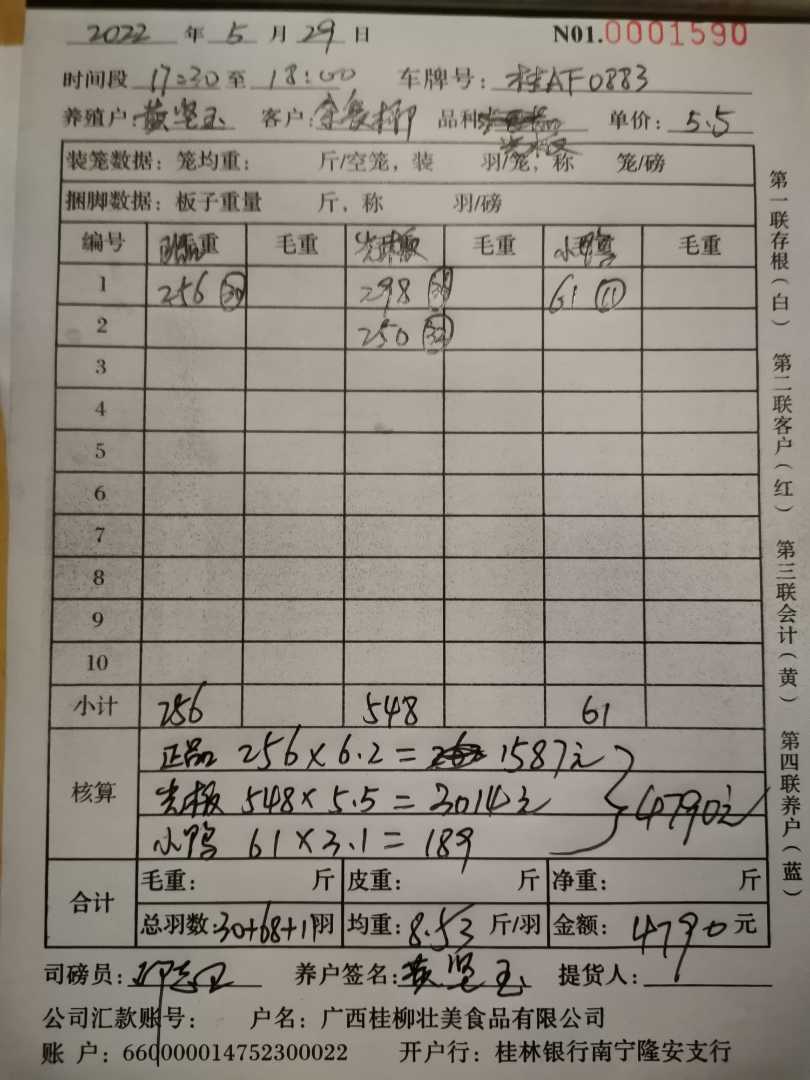 2022 年 5 月 29 日 N01.0001590
时间段 17:30 至 18:00 车牌号: 桂AF0883
养殖户: 黄坚玉 客户: 品种: 光板 单价: 5.5
装笼数据: 笼均重: 斤/空笼, 装 羽/笼, 称 笼/磅
捆脚数据: 板子重量 斤, 称 羽/磅
编号 重 毛重 光板 毛重 小鸭 毛重
1 256 30 298 61 11
2 250 32
3
4
5
6
7
8
9
10
小计 256 548 61
核算 正品 256×6.2= 1587元
光板 548×5.5=3014元 4790元
小鸭 61×3.1=189
合计 毛重: 斤 皮重: 斤 净重: 斤
总羽数: 30+68+11羽 均重: 8.53 斤/羽 金额: 4790 元
司磅员: 养户签名: 黄坚玉 提货人:
公司汇款账号: 户名: 广西桂柳壮美食品有限公司
账 户: 660000014752300022 开户行: 桂林银行南宁隆安支行
第一联存根(白) 第二联客户(红) 第三联会计(黄) 第四联养户(蓝)